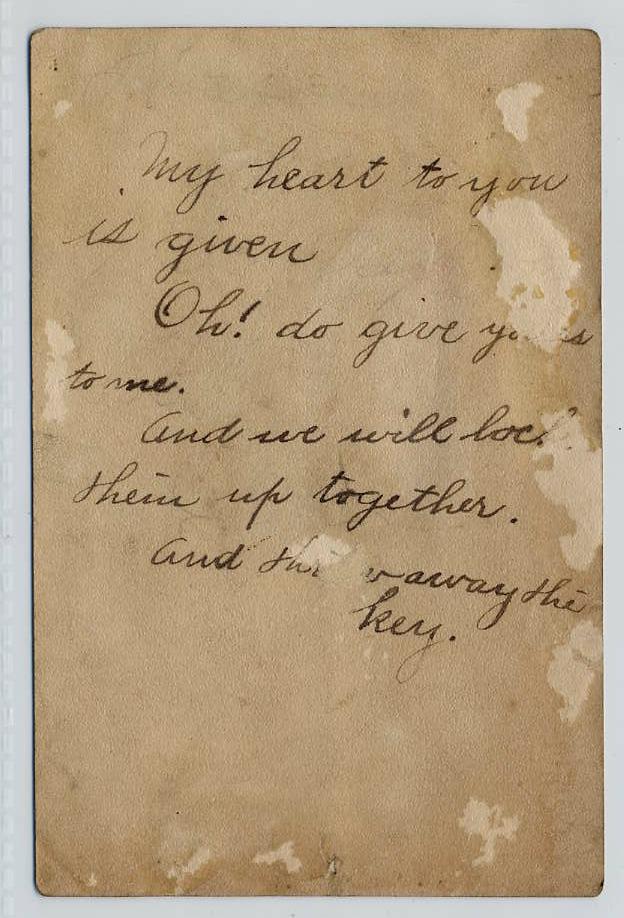 My heart to you
is given
Oh! do give yours
to me.
And we will lock
them up together.
And throw away the
key.